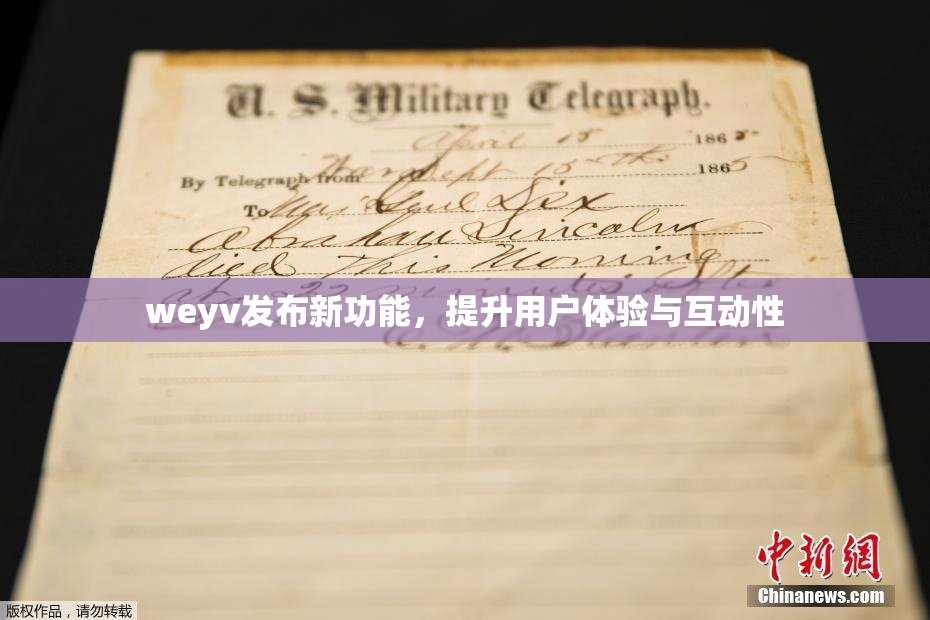 U. S. Military Telegraph.
April 15 1865
By Telegraph from War Dept 15th 1865
To Maj Genl Dix
Abraham Lincoln
died This Morning
22 minutes after
weyv发布新功能，提升用户体验与互动性
中新网
Chinanews.com
版权作品，请勿转载